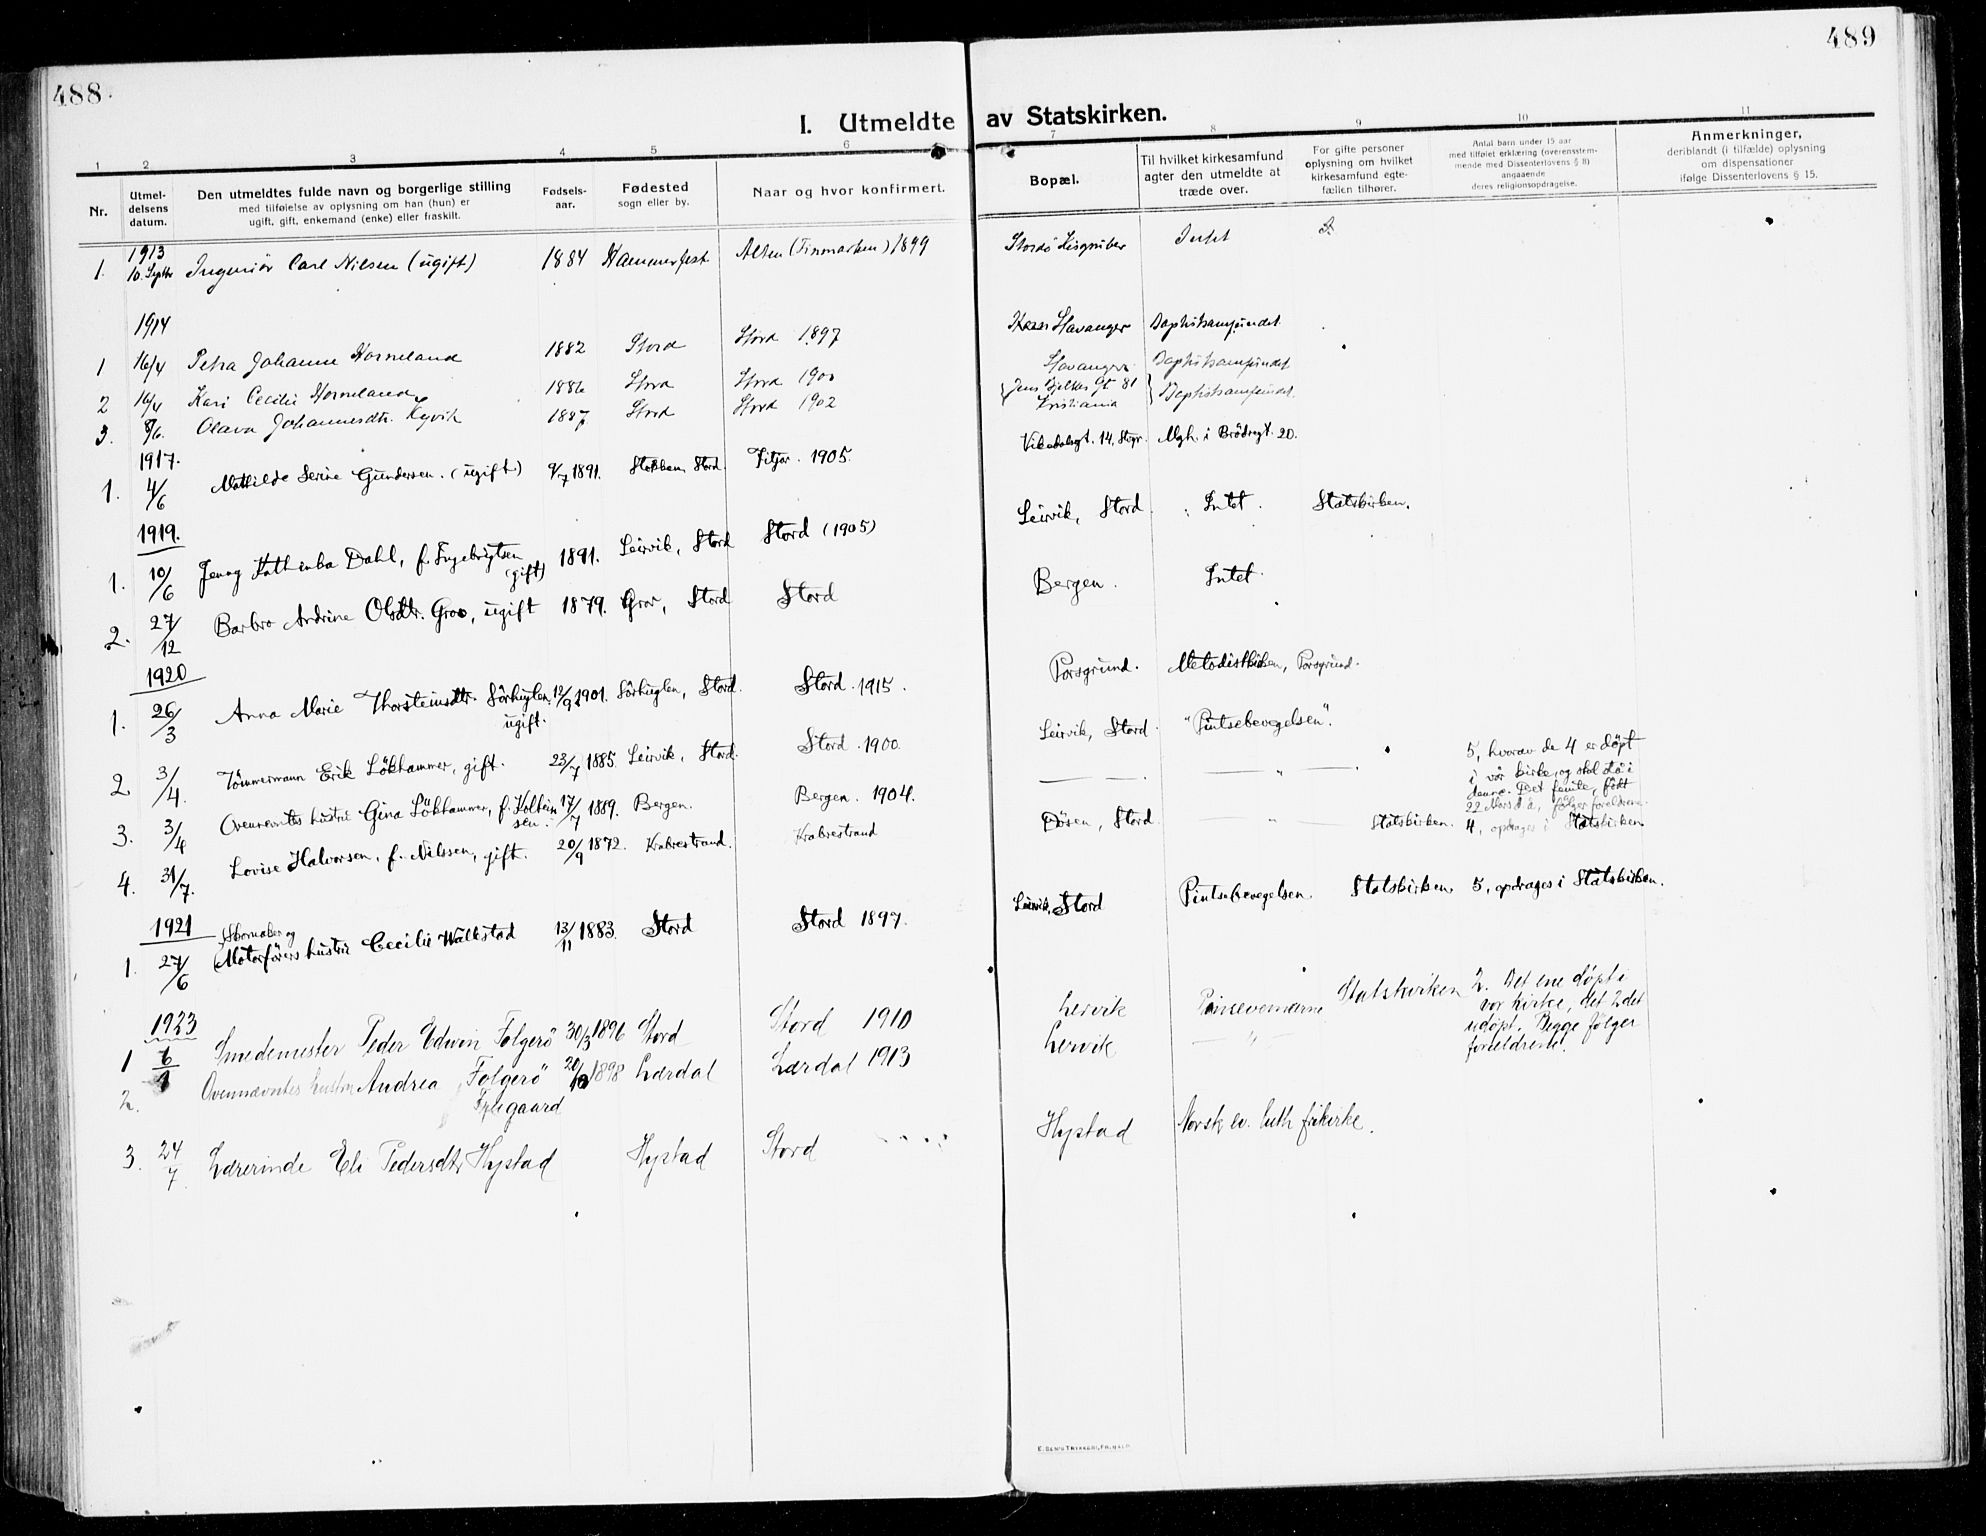 488.
489
I. Utmeldte av Statskirken.
1 2 3 4 5 6 7 8 9 10 11
Nr.
Utmeldelsens datum.
Den utmeldtes fulde navn og borgerlige stilling
med tilføielse av oplysning om han (hun) er
ugift, gift, enkemand (enke) eller fraskilt.
Fødselsaar.
Fødested
sogn eller by.
Naar og hvor konfirmert.
Bopæl.
Til hvilket kirkesamfund
agter den utmeldte at
træde over.
For gifte personer
oplysning om hvilket
kirkesamfund egtefællen tilhører.
Antal barn under 15 aar
med tilføiet erklæring (overensstemmende med Dissenterlovens § 8)
angaaende
deres religionsopdragelse.
Anmerkninger,
deriblandt (i tilfælde) oplysning
om dispensationer
ifølge Dissenterlovens § 15.
1913
1. 10. Septbr Ingeniör Carl Nilsen (ugift) 1884 Hammerfest Alten (Finmarken) 1899 Stordö Kisgruber Intet
1914
1 16/4 Petra Johanne Horneland 1882 Stord Stord 1897 Stavanger Baptistsamfundet.
2 16/4 Kari Cecilie Horneland 1886 Stord Stord 1900 Stavanger Baptistsamfundet
3. 8/6. Olava Johannesdtr. Kyvik 1887 Stord Stord 1902 Jens Bjelkes Gt 81 Kristiania Baptistsamfundet.
1917.
1. 4/6 Mathilde Serine Gundersen. (ugift) 9/7 1891. Stokken, Stord. Fitjar. 1905. Vikedalsgt. 14, Stvgr. Mgh. i Brödregt. 20.
1919.
1. 10/6 Jenny Kathinka Dahl, f. Ingebrigtsen (gift) 1891. Leirvik, Stord Stord (1905) Leirvik, Stord. Intet. Statskirken.
2. 27/12 Barbro Andrine Olsdtr. Grov, ugift 1879. Grov, Stord Stord Bergen. Intet.
1920
1. 26/3 Anna Marie Thorsteinsdtr. Sörhuglen, ugift. 12/9 1901. Sörhuglen, Stord. Stord. 1915. Porsgrund. Metodistkirken, Porsgrund.
2 3/4. Tömmermann Erik Lökhammer, gift. 23/7 1885. Leirvik, Stord. Stord. 1900. Leirvik, Stord. "Pintsebevegelsen".
5, hvorav de 4 er döpt
i vår kirke, og skal stå i
denne. Det femte, födt
22 Mars d.å., fölger foreldrene.
3. 3/4 Ovennevntes hustru Gina Lökhammer, f. Kolteinsen. 17/7 1889. Bergen. Bergen. 1904. — — — " —
4. 31/7. Lovise Halvorsen, f. Nilssen, gift. 20/9 1872. Krabrestrand. Krabrestrand Dösen, Stord. — " — Statskirken. 4, opdrages i Statskirken
1921
1. 27/6 Skomaker og Motorförers hustru Cecilie Wallestad 13/11 1883. Stord Stord 1897. Leirvik, Stord Pintsebevegelsen. Statskirken. 5, opdrages i Statskirken.
1923
1 6/1 Smedemester Peder Edwin Folgerö 30/3 1896 Stord Stord 1910 Lervik Statskirken
2. Det ene döpt i
vor kirke, det 2det
udöpt. Begge fölger
foreldrene.
2. Ovennævntes hustru Andrea Folgerö 1898 Lærdal Lærdal 1913 Lervik — " —
3. 24/7 Lærerinde Eli Pedersdtr Hystad Hystad Stord Hystad Norsk ev. luth frikirke.